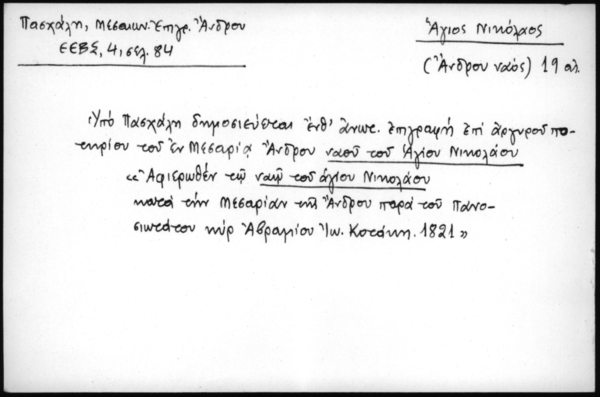 Πασχάλη, Μεσαιων. Ἐπιγρ. Ἄνδρου
ΕΕΒΣ, 4, σελ. 84
Ἅγιος Νικόλαος
(Ἄνδρου ναός) 19 αἰ.
Ὑπό Πασχάλη δημοσιεύεται ἔνθ' ἀνωτ. ἐπιγραφή ἐπί ἀργυροῦ πο-
τηρίου τοῦ ἐν Μεσαριᾷ Ἄνδρου ναοῦ τοῦ Ἁγίου Νικολάου
«Ἀφιερωθέν τῷ ναῷ τοῦ ἁγίου Νικολάου
κατά τήν Μεσαρίαν τῆς Ἄνδρου παρά τοῦ Πανο-
σιωτάτου κύρ Ἀβραμίου Ἰω. Κοτάκη. 1821»